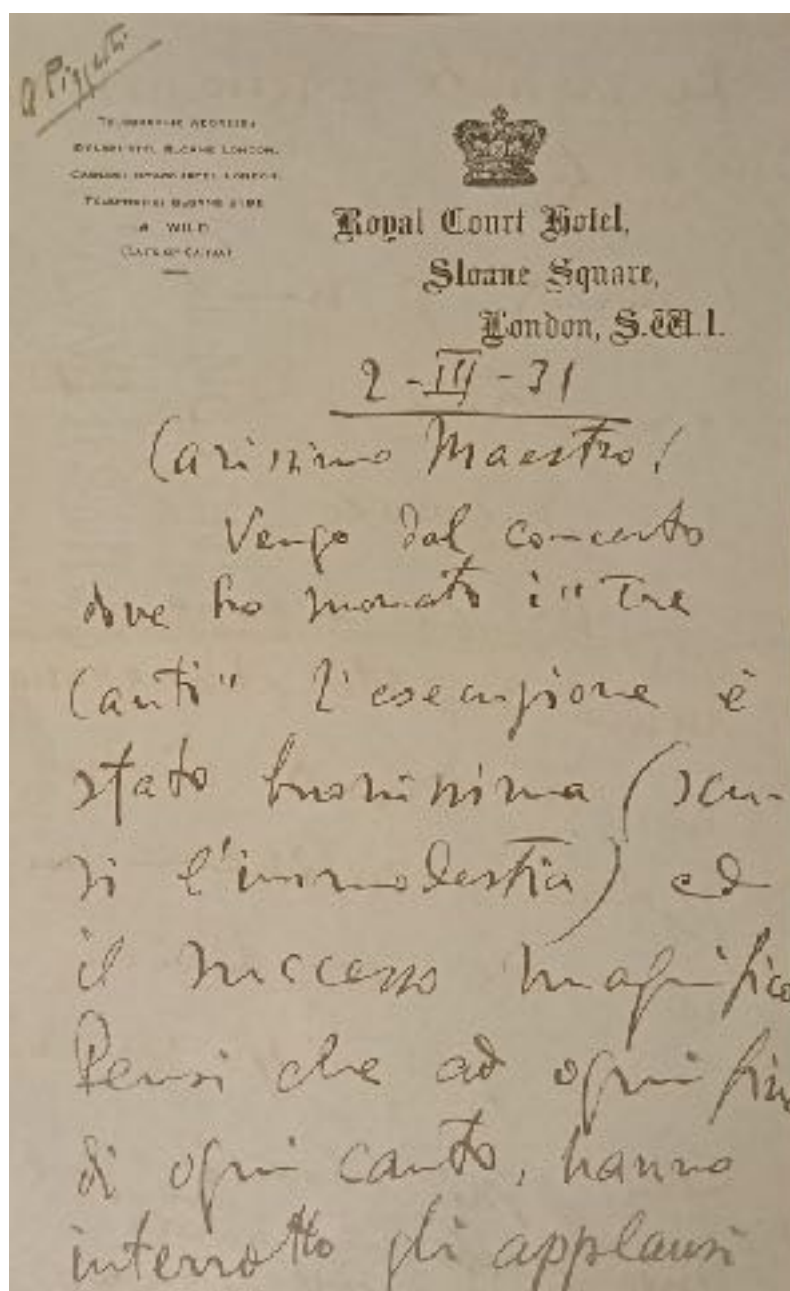 a Pizzetti
TELEGRAPHIC ADDRESS:
SLOANE LONDON.
LONDON.
TELEPHONE: SLOANE
A. WILD
(LATE OF CAIRO)
Royal Court Hotel,
Sloane Square,
London, S.W.1.
2-III-31
Carissimo Maestro!
Vengo dal concerto
dove ho suonato i "Tre
Canti" l'esecuzione è
stato buonissima (scu-
si l'immodestia) ed
il successo magnifico
Pensi che ad ogni fine
di ogni canto, hanno
interrotto gli applausi